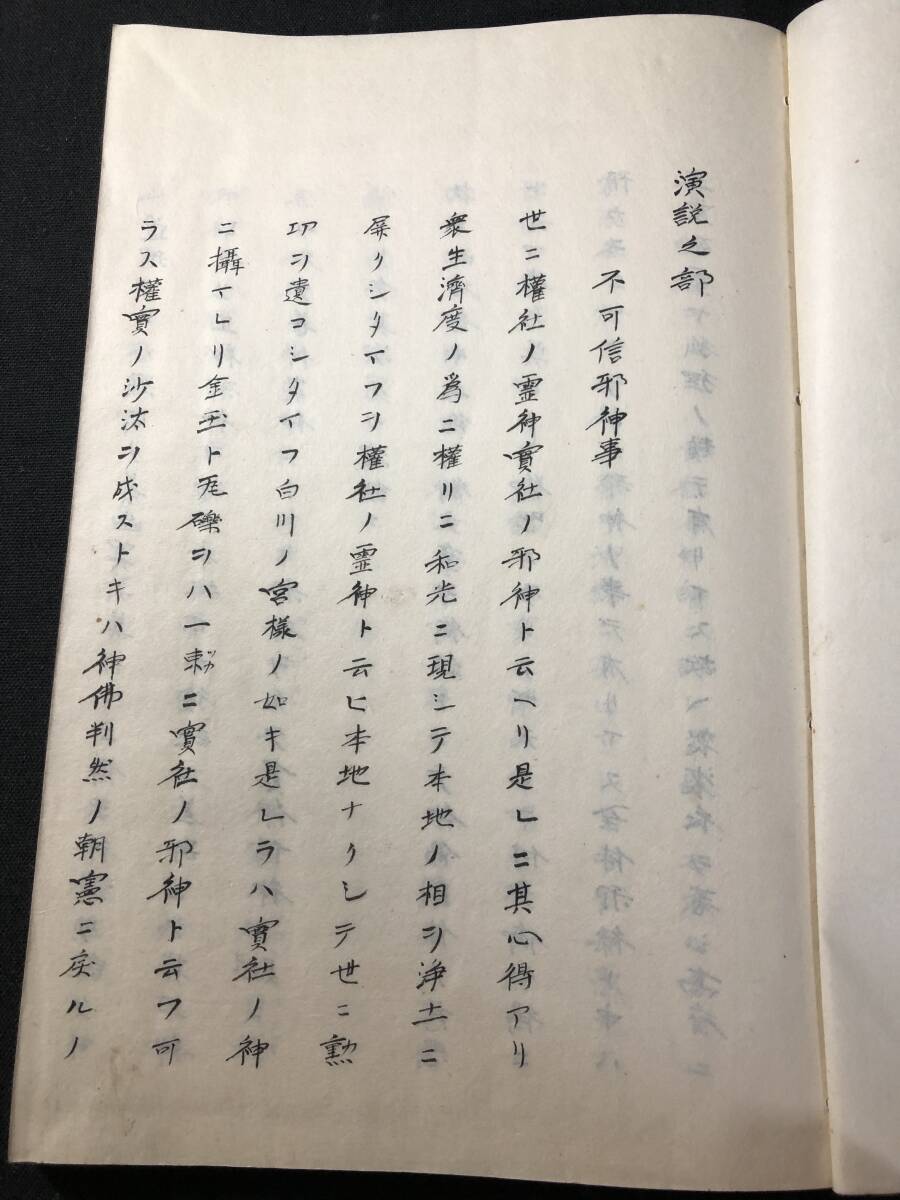 演説之部
不可信邪神事
世ニ權社ノ霊神實社ノ邪神ト云ヘリ是レニ其心得アリ
衆生濟度ノ爲ニ權リニ和光ニ現シテ本地ノ相ヲ浄土ニ
屏クシタマフヲ權社ノ霊神ト云ヒ本地ナクシテ世ニ勲
功ヲ遺コシタマフ白川ノ宮様ノ如キ是レラハ實社ノ神
ニ攝マレリ金玉ト瓦礫ヲハ一束ツカニ實社ノ邪神ト云フ可
ラス權實ノ沙汰ヲ成ストキハ神佛判然ノ朝憲ニ戻ルノ